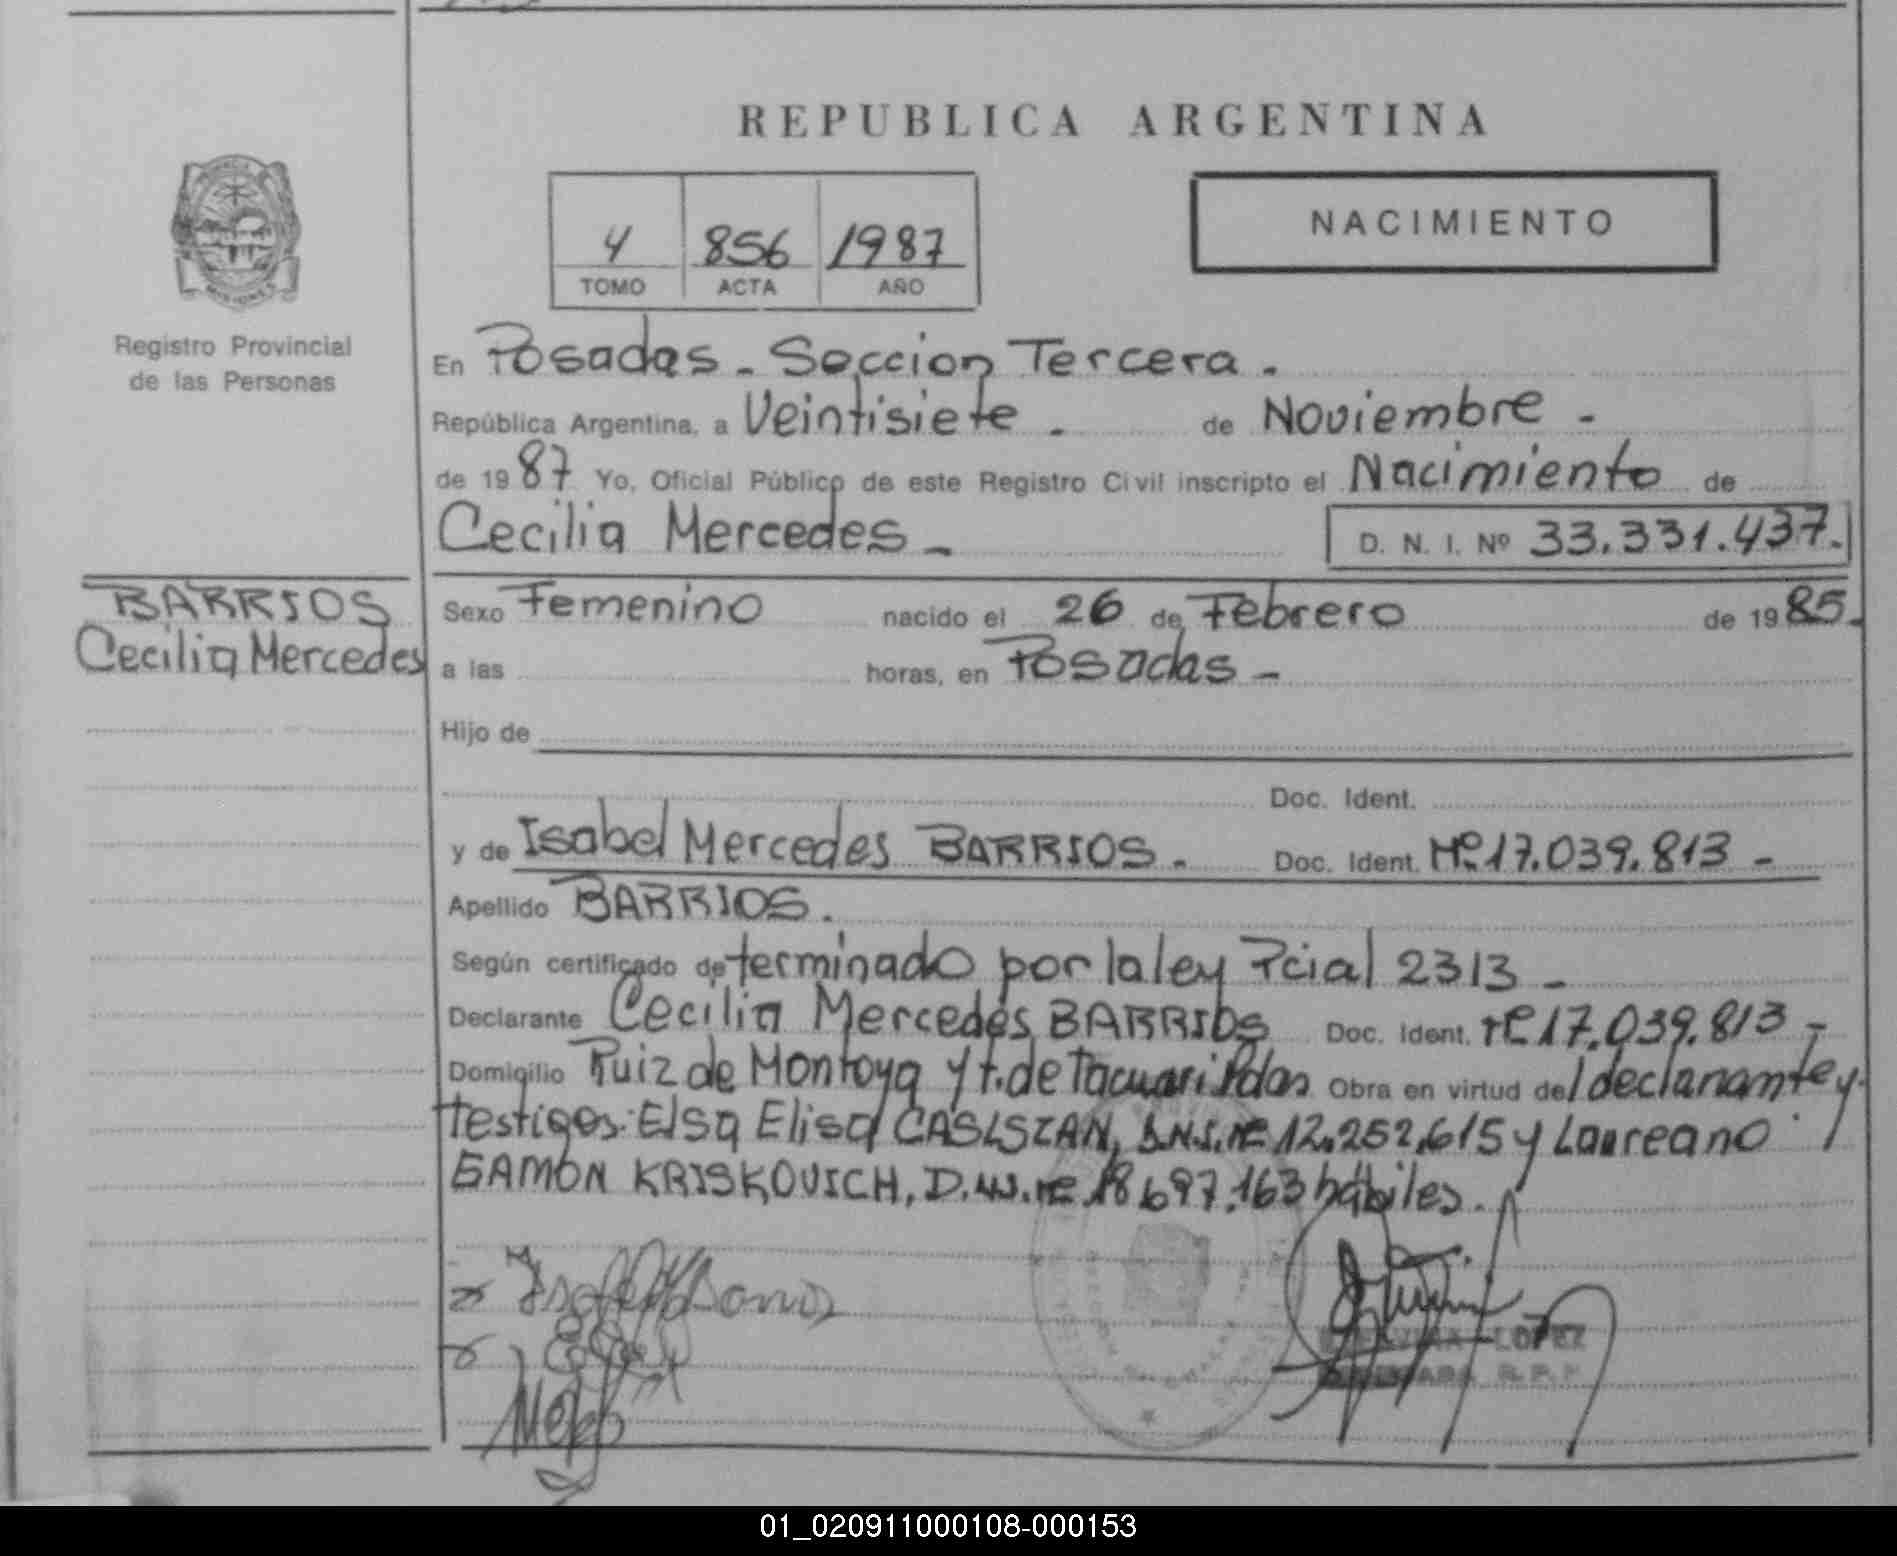 REPUBLICA ARGENTINA
NACIMIENTO
4 856 1987
TOMO ACTA AÑO
MISIONES
Registro Provincial
de las Personas
En Posadas - Seccion Tercera .
República Argentina, a Veintisiete - de Noviembre -
de 1987 Yo, Oficial Público de este Registro Civil inscripto el Nacimiento de
Cecilia Mercedes - D. N. I. Nº 33.331.437.
BARRIOS
Cecilia Mercedes
Sexo Femenino nacido el 26 de Febrero de 1985.
a las horas, en Posadas -
Hijo de
Doc. Ident.
y de Isabel Mercedes BARRIOS. Doc. Ident. Nº 17.039.813 -
Apellido BARRIOS.
Según certificado determinado por la ley Pcial 2313 -
Declarante Cecilia Mercedes BARRIOS Doc. Ident. Nº 17.039.813 -
Domicilio Ruiz de Montoya y t. de Tacuari Pdas Obra en virtud del declarante y
testigos: Elsa Elisa D.N.I. Nº 12.252.615 y Laureano
RAMON KRISKOVICH, D.N.I. Nº 18.697.163 hábiles.
LOPEZ
01_020911000108-000153